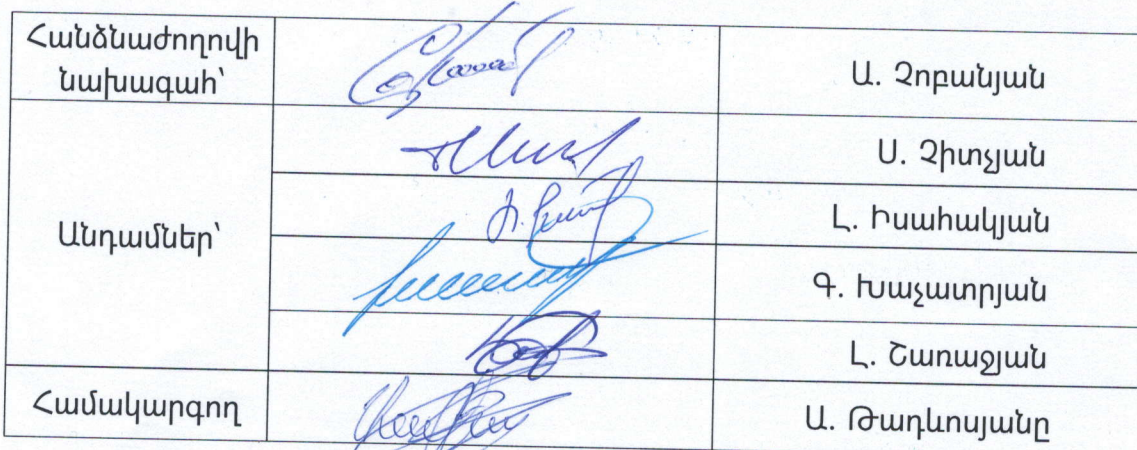 Հանձնաժողովի
նախագահ՝
Ա. Չոբանյան
Ս. Չիտչյան
Անդամներ՝
Լ. Իսահակյան
Գ. Խաչատրյան
Լ. Շառաջյան
Համակարգող
Ա. Թադևոսյանը